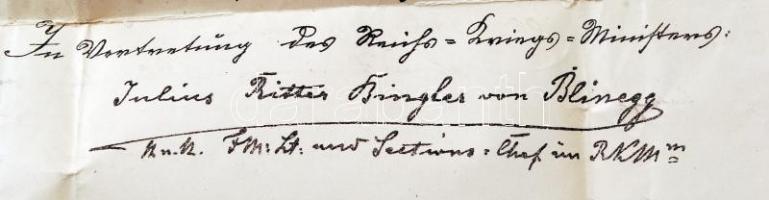 In Vertretung des Reichs=Kriegs=Ministers:
Julius Ritter Kingler von Blinegg
K. u. K. FM: Lt: und Sections=Chef im RKMm